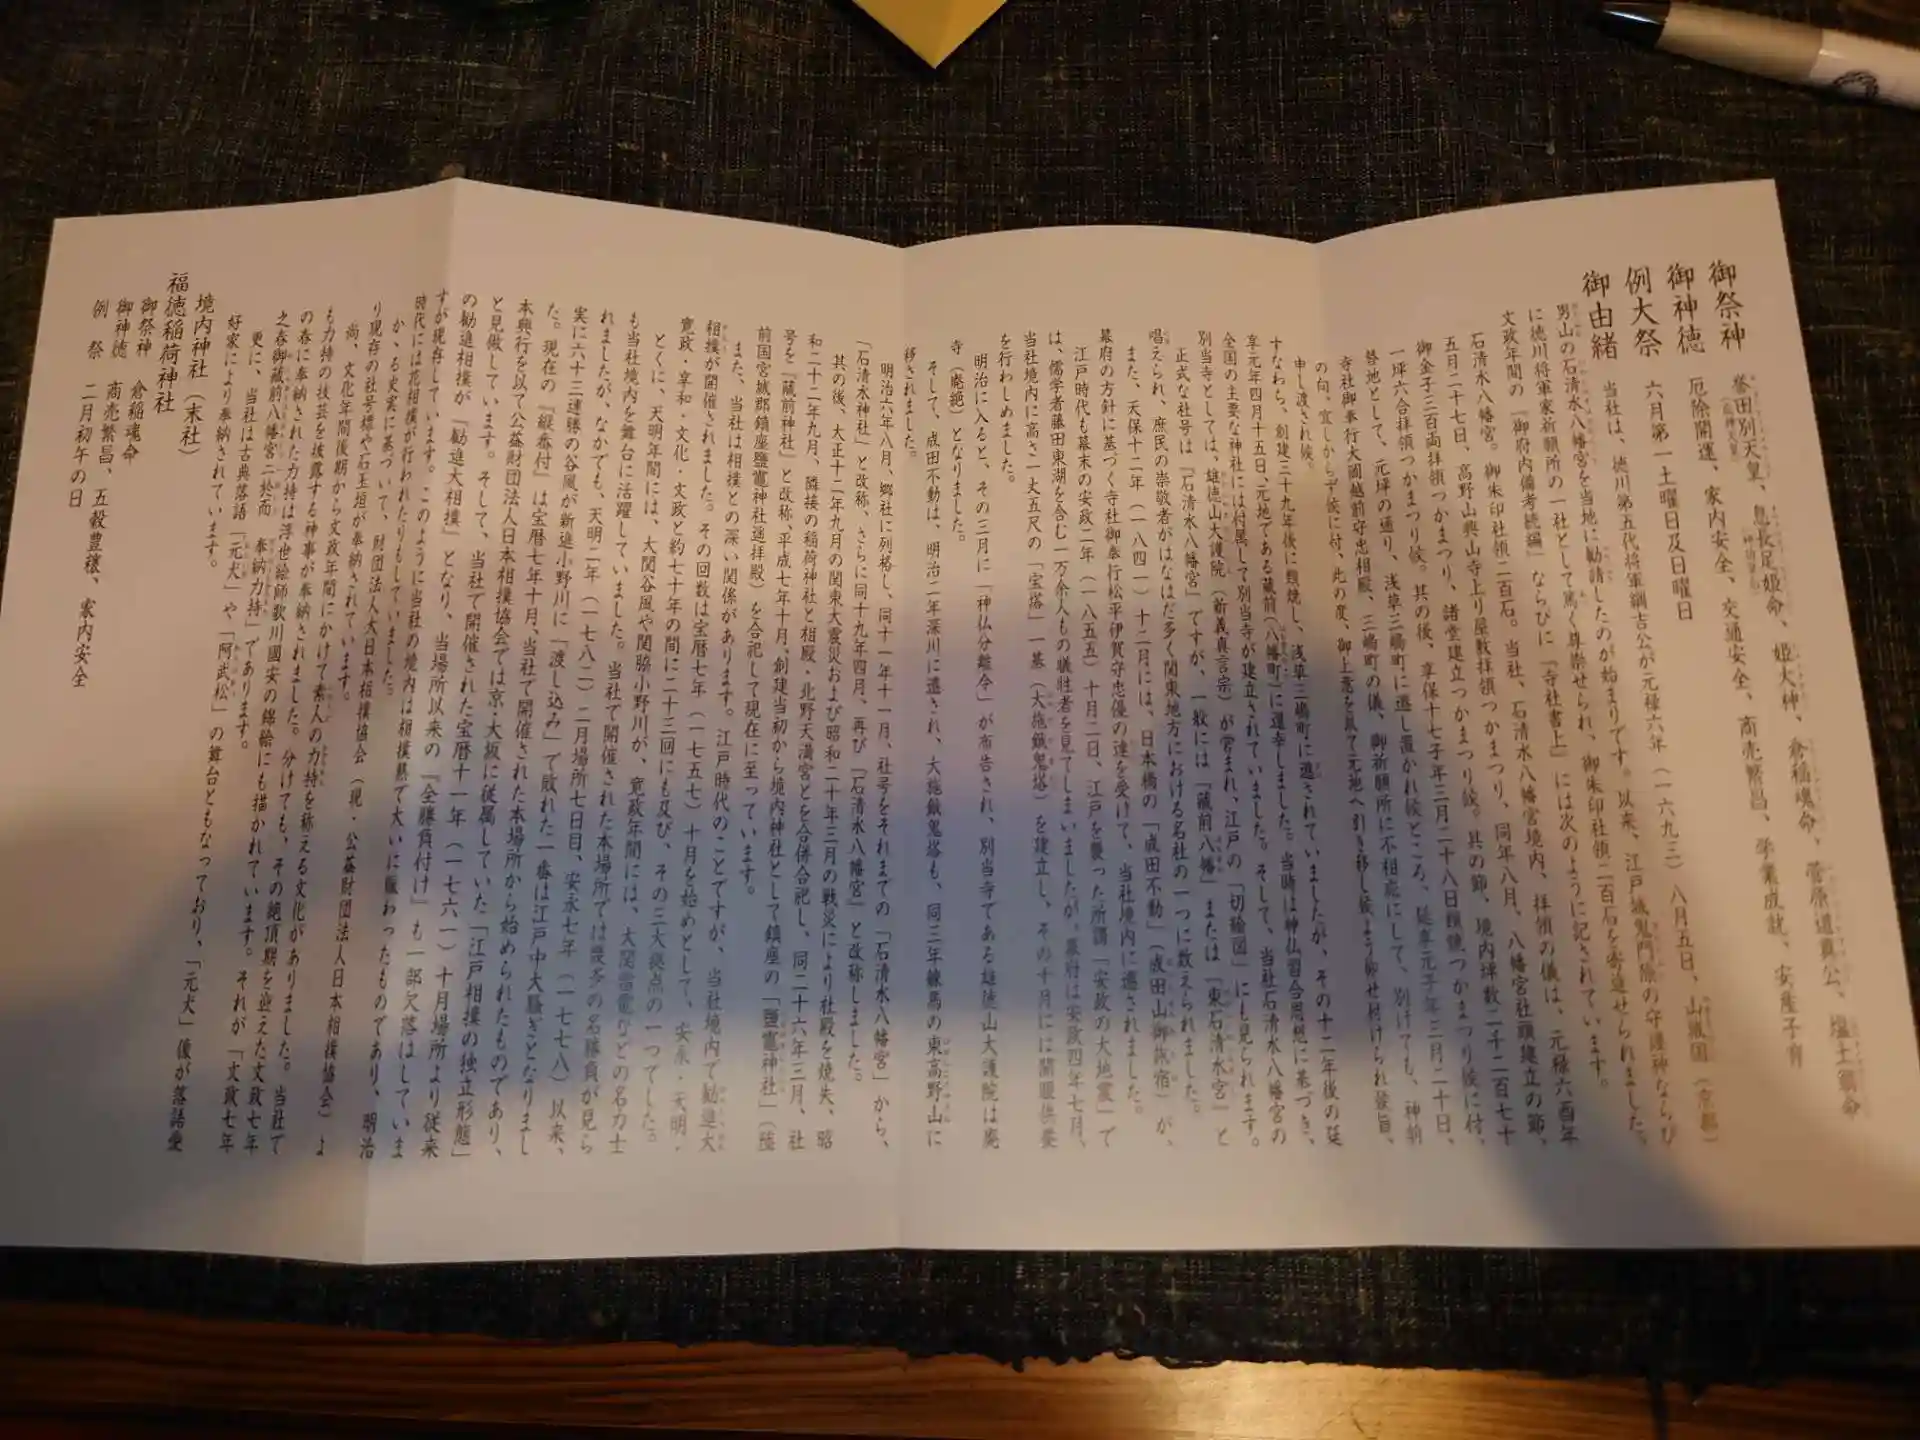 御祭神 誉田別天皇、息長足姫命、姫大神、倉稲魂命、菅原道真公、塩土翁命
御神徳 厄除開運、家内安全、交通安全、商売繁昌、学業成就、安産子育
例大祭 六月第一土曜日及日曜日
御由緒 当社は、徳川第五代将軍綱吉公が元禄六年（一六九三）八月五日、山城国（京都）
男山の石清水八幡宮を当地に勧請したのが始まりです。以来、江戸城鬼門除の守護神ならび
に徳川将軍家祈願所の一社として篤く尊崇せられ、御朱印社領二百石を寄進せられました。
文政年間の『御府内備考続編』ならびに『寺社書上』には次のように記されています。
石清水八幡宮。御朱印社領二百石。当社、石清水八幡宮境内、拝領の儀は、元禄六酉年
五月二十七日、高野山興山寺上り屋敷拝領つかまつり、同年八月、八幡宮社頭建立の節、
御金子三百両拝領つかまつり、諸堂建立つかまつり候。其の節、境内坪数二千二百七十
一坪六合拝領つかまつり候。其の後、享保十七子年三月二十八日類焼つかまつり候に付、
替地として、元坪の通り、浅草三嶋町に遷し置かれ候ところ、延享元子年三月二十日、
寺社御奉行大岡越前守忠相殿、三嶋町の儀、御祈願所に不相応にして、別けても、神朝
の向、宜しからず候に付、此の度、御上意を以て元地へ引き移し候よう仰せ付けられ候旨、
申し渡され候。
すなわち、創建三十九年後に類焼し、浅草三嶋町に遷されていましたが、その十二年後の延
享元年四月十五日、元地である蔵前（八幡町）に還幸しました。当時は神仏習合思想に基づき、
全国の主要な神社には付属して別当寺が建立されていました。そして、当社石清水八幡宮の
別当寺としては、雄徳山大護院（新義真言宗）が営まれ、江戸の「切絵図」にも見られます。
正式な社号は『石清水八幡宮』ですが、一般には「蔵前八幡」または「東石清水宮」と
唱えられ、庶民の崇敬者がはなはだ多く関東地方における名社の一つに数えられました。
また、天保十二年（一八四一）十二月には、日本橋の「成田不動」（成田山御旅宿）が、
幕府の方針に基づく寺社御奉行松平伊賀守忠優の達を受けて、当社境内に遷されました。
江戸時代も幕末の安政二年（一八五五）十月二日、江戸を襲った所謂「安政の大地震」で
は、儒学者藤田東湖を含む一万余人もの犠牲者を見てしまいましたが、幕府は安政四年七月、
当社境内に高さ一丈五尺の「宝塔」一基（大施餓鬼塔）を建立し、その十月には開眼供養
を行わしめました。
明治に入ると、その三月に「神仏分離令」が布告され、別当寺である雄徳山大護院は廃
寺（廃絶）となりました。
そして、成田不動は、明治二年深川に遷され、大施餓鬼塔も、同三年練馬の東高野山に
移されました。
明治六年八月、郷社に列格し、同十一年十一月、社号をそれまでの「石清水八幡宮」から、
「石清水神社」と改称、さらに同十九年四月、再び「石清水八幡宮」と改称しました。
其の後、大正十二年九月の関東大震災および昭和二十年三月の戦災により社殿を焼失、昭
和二十二年九月、隣接の稲荷神社と相殿・北野天満宮とを合併合祀し、同二十六年三月、社
号を『蔵前神社』と改称、平成七年十月、創建当初から境内神社として鎮座の「塩竈神社」（陸
前国宮城郡鎮座鹽竈神社遥拝殿）を合祀して現在に至っています。
また、当社は相撲との深い関係があります。江戸時代のことですが、当社境内で勧進大
相撲が開催されました。その回数は宝暦七年（一七五七）十月を始めとして、安永・天明・
寛政・享和・文化・文政と約七十年の間に二十三回にも及び、その三大拠点の一つでした。
とくに、天明年間には、大関谷風や関脇小野川が、寛政年間には、大関雷電などの名力士
も当社境内を舞台に活躍していました。当社で開催された本場所では幾多の名勝負が見ら
れましたが、なかでも、天明二年（一七八二）二月場所七日目、安永七年（一七七八）以来、
実に六十三連勝の谷風が新進小野川に「渡し込み」で敗れた一番は江戸中大騒ぎとなりまし
た。現在の『縦番付』は宝暦七年十月、当社で開催された本場所から始められたものであり、
本興行を以て公益財団法人日本相撲協会では京・大坂に従属していた「江戸相撲の独立形態」
と見做しています。そして、当社で開催された宝暦十一年（一七六一）十月場所より従来
の勧進相撲が『勧進大相撲』となり、当場所以来の『全勝負付け』も一部欠落はしていま
すが現存しています。このように当社の境内は相撲熱で大いに賑わったものであり、明治
時代には花相撲が行われたりもしていました。
かゝる史実に基づいて、財団法人大日本相撲協会（現・公益財団法人日本相撲協会）よ
り現存の社号標や石玉垣が奉納されています。
尚、文化年間後期から文政年間にかけて素人の力持を称える文化がありました。当社で
も力持の技芸を披露する神事が奉納されました。分けても、その絶頂期を迎えた文政七年
の春に奉納された力持は浮世絵師歌川國安の錦絵にも描かれています。それが「文政七年
之春御蔵前八幡宮ニ於而 奉納力持」であります。
更に、当社は古典落語「元犬」や「阿武松」の舞台ともなっており、「元犬」像が落語愛
好家により奉納されています。
境内神社（末社）
福徳稲荷神社
御祭神 倉稲魂命
御神徳 商売繁昌、五穀豊穣、家内安全
例祭 二月初午の日